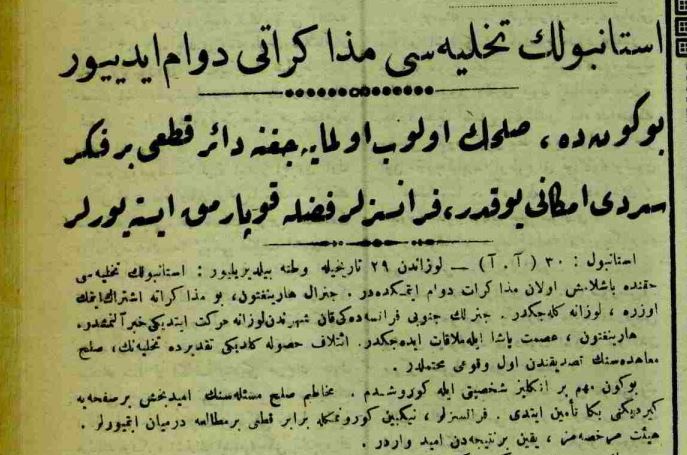 استانبولك تخليه‌سى مذاكراتى دوام ايدييور
بوكون ده ، صلحك اولوب اولمايه جغنه دائر قطعى بر فكر
سردى امكانى يوقدر، فرانسزلر فضله قوپارمق ايسته يورلر
استانبول : ٣٠ ( آ . آ ) — لوزاندن ٢٩ تاريخيله وطنه بيلديريليور : استانبولك تخليه‌سى
حقنده باشلامش اولان مذاكرات دوام ايتمكده‌در . جنرال هارينغتون، بو مذاكراته اشتراك ايتمك
اوزره ، لوزانه كله‌جكدر . جنرلك جنوبى فرانسه‌ده‌كى قان شهرندن لوزانه حركت ايتديكى خبر آلنمشدر.
هارينغتون ، عصمت پاشا ايله ملاقات ايده‌جكدر. ائتلاف حصوله كلديكى تقديرده تخليه‌نك، صلح
معاهده‌سنك تصديقندن اول وقوعى محتملدر .
بوكون مهم بر انكليز شخصيتى ايله كوروشدم . مخاطبم صلح مسئله‌سنك اميدبخش بر صفحه‌يه
كيرديكنى بكا تأمين ايتدى . فرانسزلر ، نيكبين كورونمكله برابر قطعى بر مطالعه درميان ايتميورلر .
هيئت مرخصه‌مز ، يقين بر نتيجه‌دن اميد واردر .